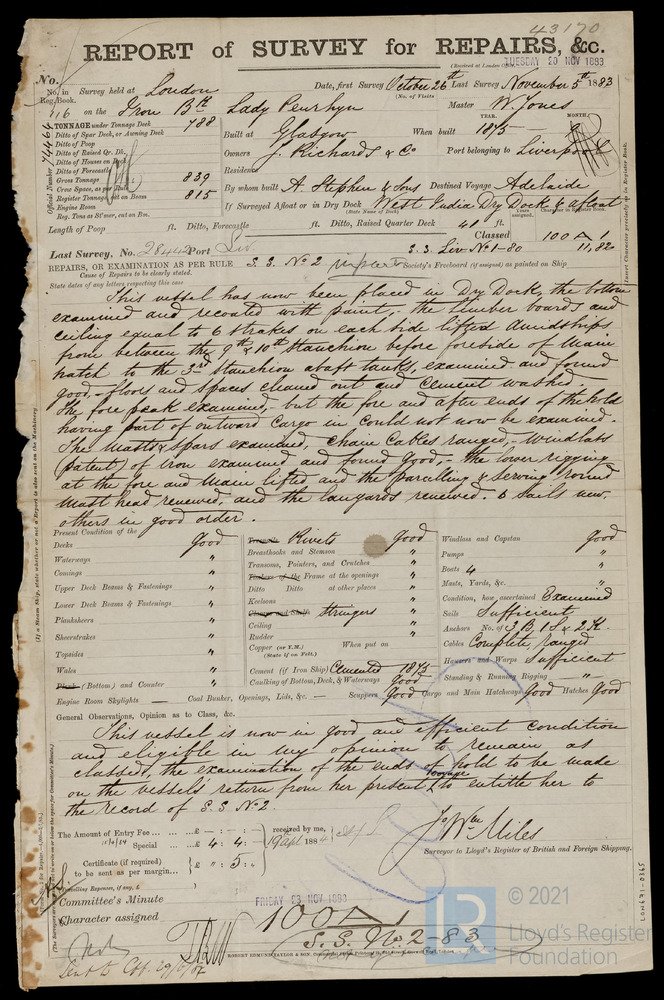 43170
REPORT of SURVEY for REPAIRS, &c.
TUESDAY 20 NOV 1883
No.
No. in Reg. Book. 716
Survey held at London
Date, first Survey October 26th Last Survey November 5th 1883
(No. of Visits
on the Iron Bk Lady Penrhyn
Master W. Jones
TONNAGE under Tonnage Deck 788
Ditto of Spar Deck, or Awning Deck
Ditto of Poop
Ditto of Raised Qr. Dk.
Ditto of Houses on Deck
Ditto of Forecastle
Gross Tonnage 839
Crew Space, as per Rule
Register Tonnage cut on Beam 815
Engine Room
Reg. Tons as St'mer, cut on Bm.
Built at Glasgow When built YEAR. 1875 MONTH.
Owners J. Richards & Co Port belonging to Liverpool
Residence
By whom built A. Stephen & Sons Destined Voyage Adelaide
If Surveyed Afloat or in Dry Dock West India Dry Dock & afloat
(State Name of Dock)
Length of Poop ft. Ditto, Forecastle ft. Ditto, Raised Quarter Deck 41 ft.
Classed 100 A 1
Last Survey, No. 28442 Port Liv. S.S. Liv No 1-80 11,82
REPAIRS, OR EXAMINATION AS PER RULE S. S. No 2 Society's Freeboard (if assigned) as painted on Ship
Cause of Repairs to be clearly stated.
State dates of any letters respecting this case
This vessel has now been placed in Dry Dock, the bottom
examined and recoated with paint,- the limber boards and
ceiling equal to 6 strakes on each side lifted amidships
from between the 9th & 10th stanchion before foreside of Main
hatch to the 3rd stanchion abaft tanks, examined and found
good,- floors and spaces cleaned out and cement washed,-
the fore peak examined,- but the fore and after ends of the hold
having part of outward cargo in could not now be examined.
The Masts & Spars examined, chain Cables ranged,- windlass
(patent) of iron examined and found good,- the lower rigging
at the fore and Main lifted and the parcelling & serving round
Mast head renewed, and the lanyards renewed.- 6 sails new,
others in good order.
Present Condition of the
Decks Good
Waterways "
Comings "
Upper Deck Beams & Fastenings "
Lower Deck Beams & Fastenings "
Planksheers "
Sheerstrakes "
Topsides "
Wales "
Plank (Bottom) and Counter "
Treenails Rivets Good
Breasthooks and Stemson "
Transoms, Pointers, and Crutches "
Timbers of the Frame at the openings "
Ditto Ditto at other places "
Keelsons "
Clamps and Shelfs Stringers "
Ceiling "
Rudder "
Copper (or Y.M.) When put on
(State if on Felt.)
Cement (if Iron Ship) Cemented 1875
Caulking of Bottom, Deck, & Waterways Good
Windlass and Capstan Good
Pumps "
Boats 4 "
Masts, Yards, &c. "
Condition, how ascertained Examined
Sails Sufficient
Anchors No. of 3 B, 1 S & 2 K.
Cables Complete, ranged
Hawsers and Warps Sufficient
Standing & Running Rigging — " —
Engine Room Skylights — Coal Bunker, Openings, Lids, &c. — Scuppers Good Cargo and Main Hatchways Good Hatches Good
General Observations, Opinion as to Class, &c.
This vessel is now in good and efficient condition
and eligible in my opinion to remain as
classed, the examination of the ends of hold to be made
on the vessel's return from her present voyage to entitle her to
the record of S.S No 2.
The Amount of Entry Fee ... ... £ - : - : -
Special ... £ 4 : 4 : -
received by me,
19 Apl 1884
Certificate (if required) £ " : 5 : -
to be sent as per margin...
Travelling Expenses, if any, £
Jo Wm Miles
Surveyor to Lloyd's Register of British and Foreign Shipping.
Committee's Minute FRIDAY 23 NOV 1883
Character assigned 100 A 1
S.S. No 2-83
LON671-0365
© 2021
LR
Lloyd's Register
Foundation